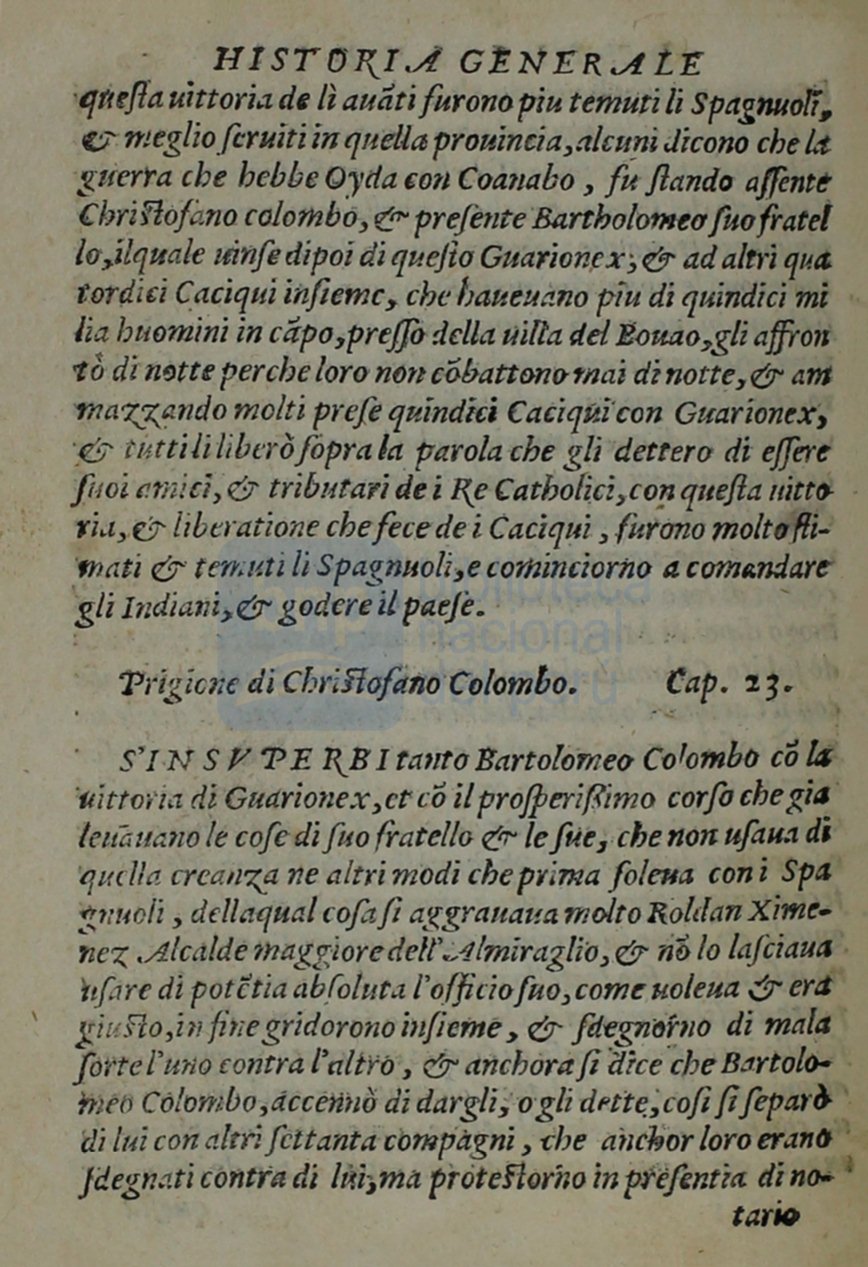 HISTORIA GENERALE
questa uittoria de lì auãti furono piu temuti li Spagnuoli,
& meglio seruiti in quella prouincia, alcuni dicono che la
guerra che hebbe Oyda con Coanabo, fu stando assente
Christofano colombo, & presente Bartholomeo suo fratel
lo, ilquale uinse dipoi di questo Guarionex, & ad altri qua
tordici Caciqui insieme, che haueuano piu di quindici mi
lia huomini in cãpo, presso della uilla del Bouao, gli affron
tò di notte perche loro non cõbattono mai di notte, & am
mazzando molti prese quindici Caciqui con Guarionex,
& tutti li liberò sopra la parola che gli dettero di essere
suoi amici, & tributari de i Re Catholici, con questa uitto
ria, & liberatione che fece de i Caciqui, furono molto sti-
mati & temuti li Spagnuoli, e cominciorno a comandare
gli Indiani, & godere il paese.
biblioteca
nacional
del perú
Prigione di Christofano Colombo. Cap. 23.
S'INSVPERBI tanto Bartolomeo Colombo cõ la
uittoria di Guarionex, et cõ il prosperissimo corso che gia
leuauano le cose di suo fratello & le sue, che non usaua di
quella creanza ne altri modi che prima soleua con i Spa
gnuoli, dellaqual cosa si aggrauaua molto Roldan Xime-
nez Alcalde maggiore dell'Almiraglio, & nõ lo lasciaua
usare di potẽtia absoluta l'officio suo, come uoleua & era
giusto, in fine gridorono insieme, & sdegnorno di mala
sorte l'uno contra l'altro, & anchora si dice che Bartolo-
meo Colombo, accennò di dargli, o gli dette, cosi si separò
di lui con altri settanta compagni, che anchor loro erano
sdegnati contra di lui, ma protestorno in presentia di no-
tario